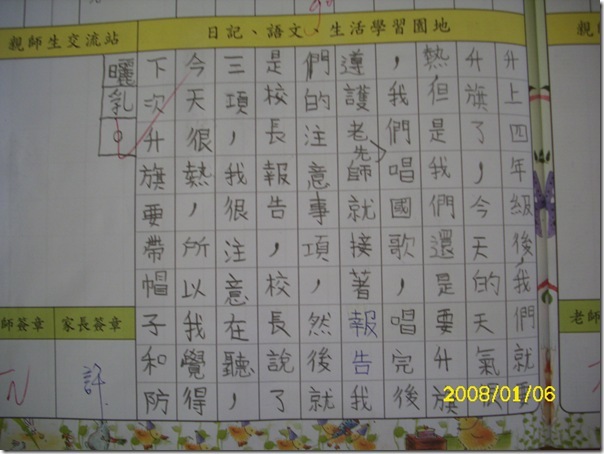 日記、語文、生活學習園地
親師生交流站
升上四年級後,我們就
升旗了,今天的天氣很
熱,但是我們還是要升旗
,我們唱國歌,唱完後
遵護老師先就接著報告我
們的注意事項,然後就
是校長報告,校長說了
三項,我很注意在聽,
今天很熱,所以我覺得,
下次升旗要帶帽子和防
曬乳。
師簽章
家長簽章
許
親
老師
2008/01/06